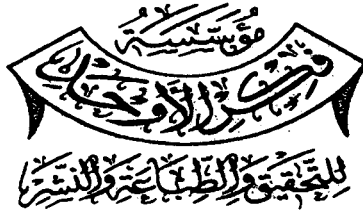 مُؤَسَّسَة
فكر الأوحد
لِلتَّحْقِيقِ وَالطِّبَاعَةِ وَالنَّشْرِ